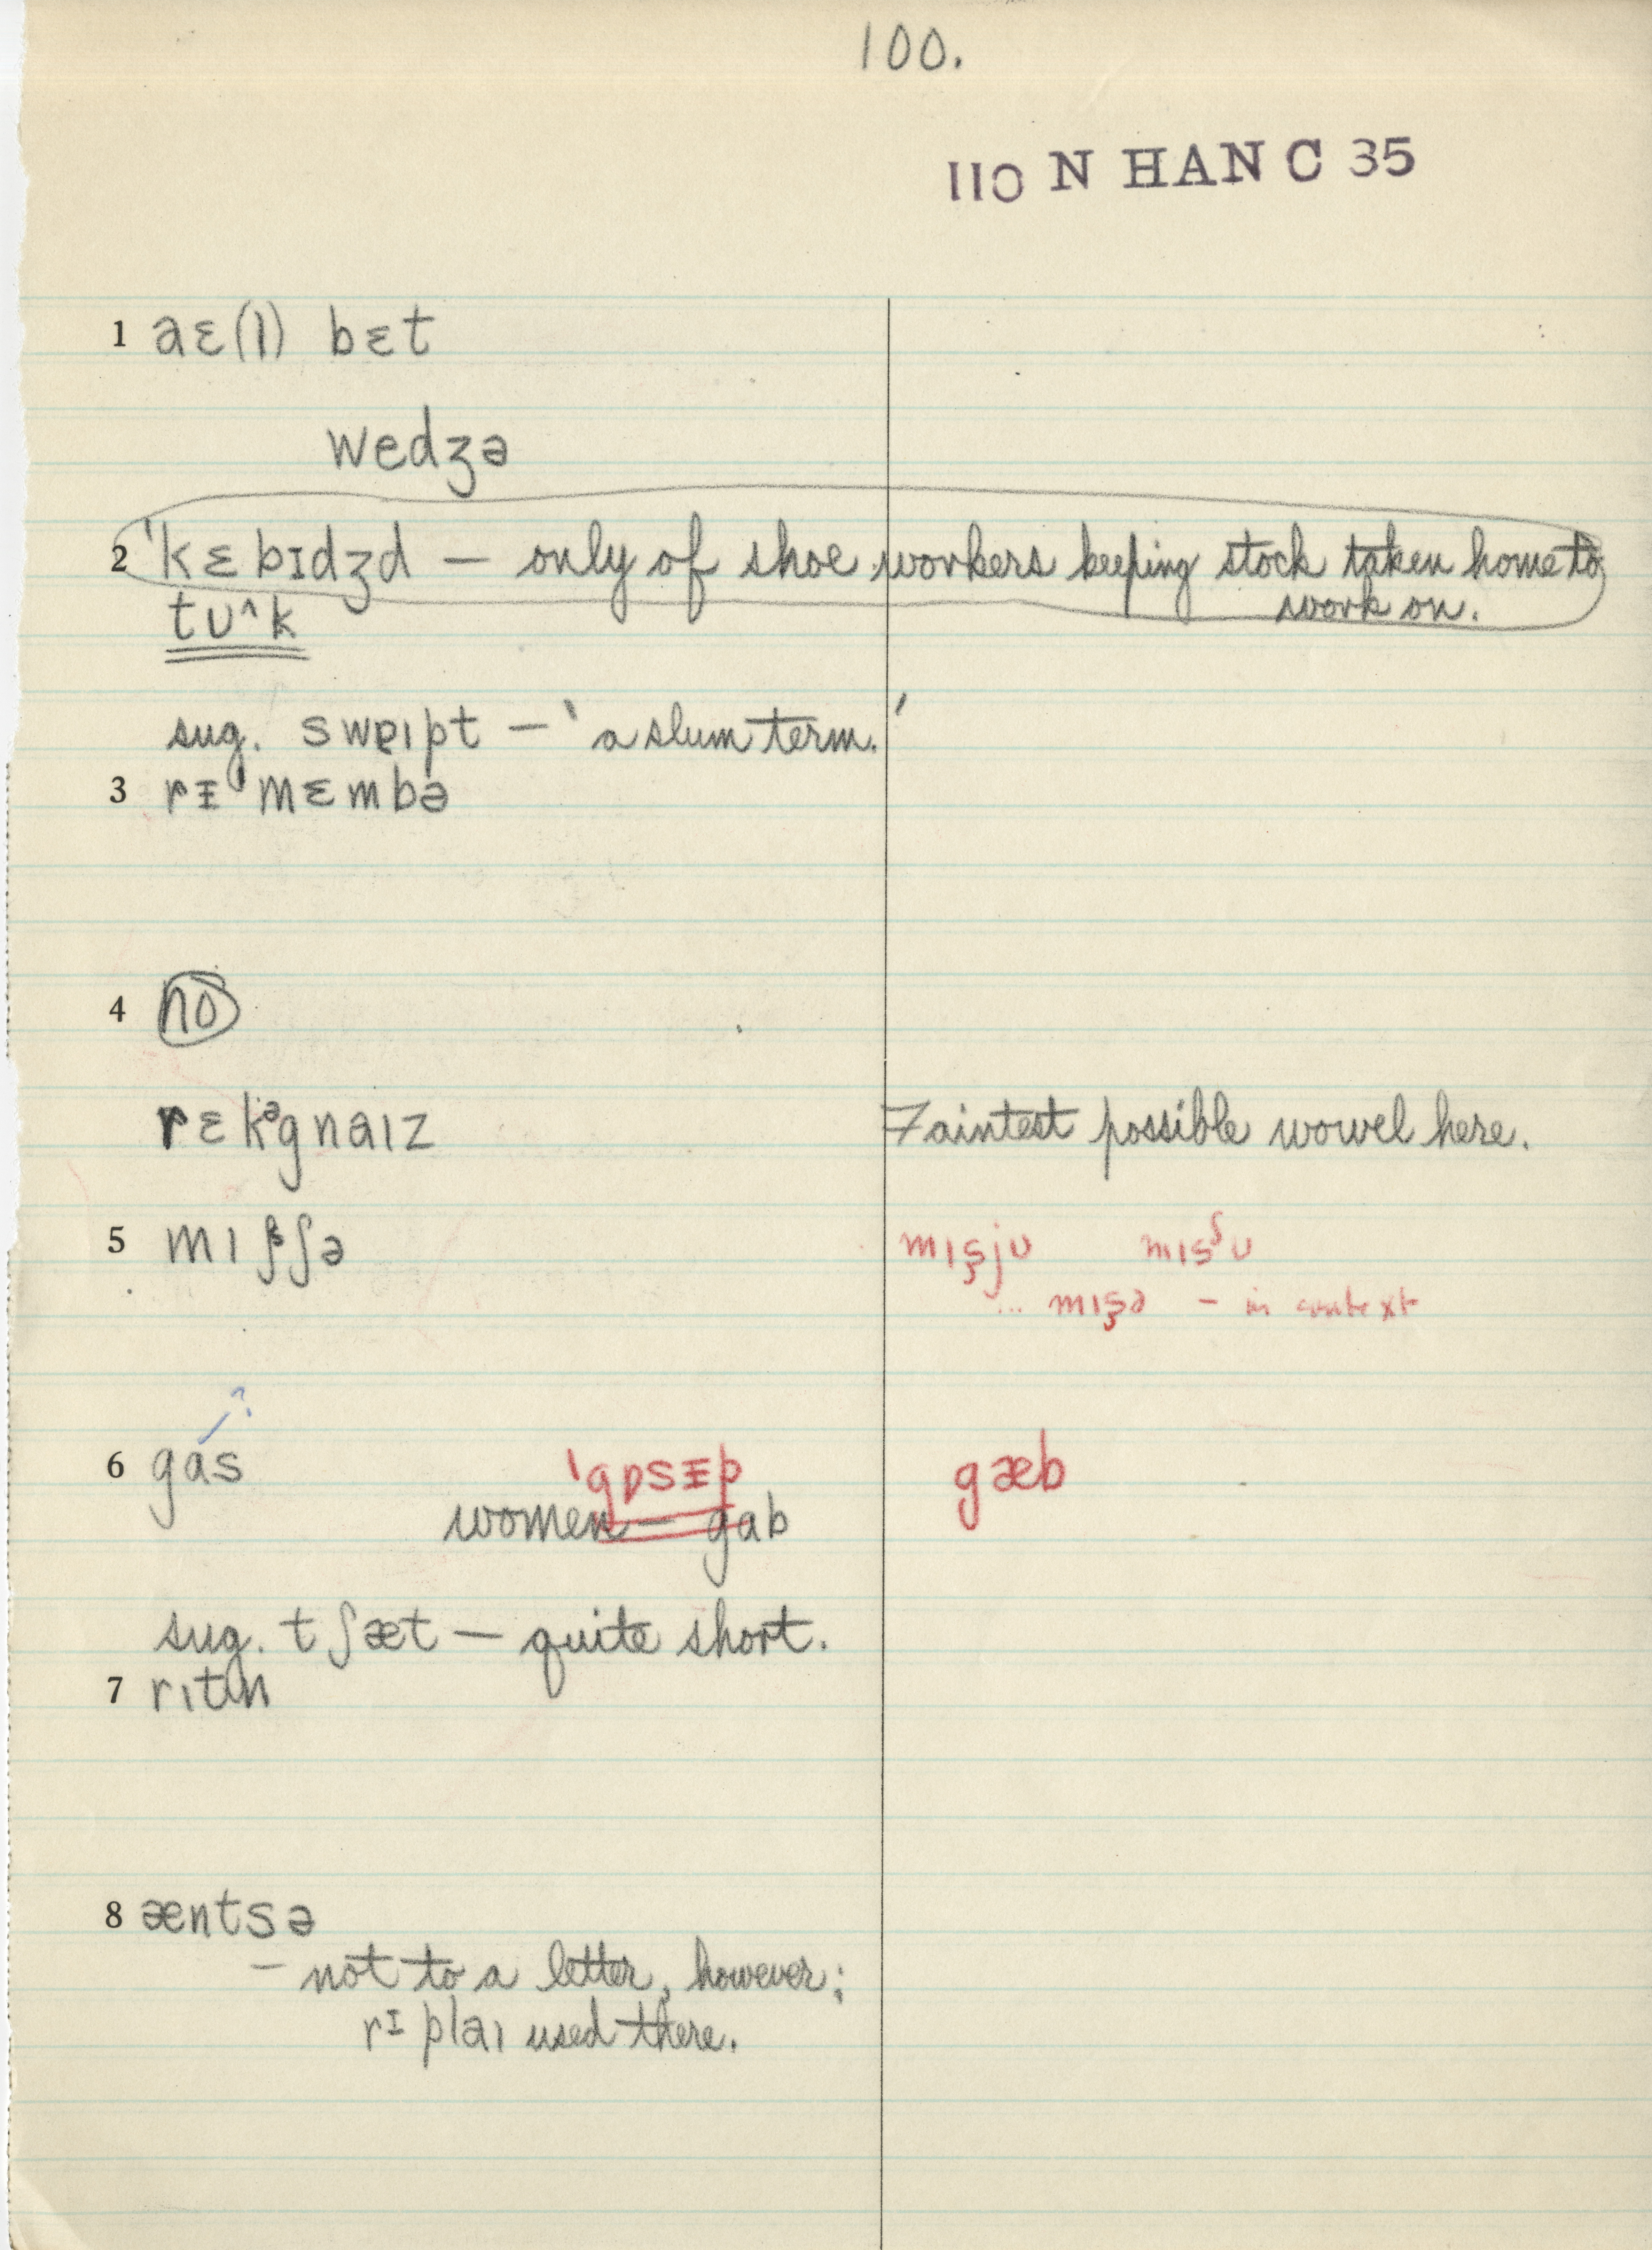 100.
110 N HAN C 35
1 aɛ(l) bɛt
wedʒə
2 'kɛbɪdʒd — only of shoe workers keeping stock taken home to
work on.
tʊ^k
sug. swɐɪpt — 'a slum term.'
3 rᵻ'mɛmbə
4 no
rɛkᵊgnaɪz Faintest possible wowel here.
5 mɪʃʃə mɪʂjʊ mɪsᶴʊ
... mɪʂə — in context
?
6 gas 'gɒsᵻp gæb
women — gab
sug. tʃæt — quite short.
7 rɪtn
8 æntsə
— not to a letter, however;
rɪplaɪ used there.